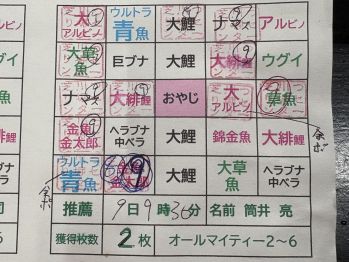 大アルビノ ウルトラ青魚 大鯉 ナマズ アルビノ
大草魚 巨ブナ 大鯉 大緋鯉 ウグイ
ナマズ 大緋鯉 おやじ 大アルビノ 草魚
金魚金太郎 ヘラブナ中ベラ 大鯉 錦金魚 大緋鯉
ウルトラ青魚 金太郎 大鯉 大草魚 ヘラブナ中ベラ
推薦 9日9時30分 名前 筒井 亮
獲得枚数 2枚 オールマイティー2〜6